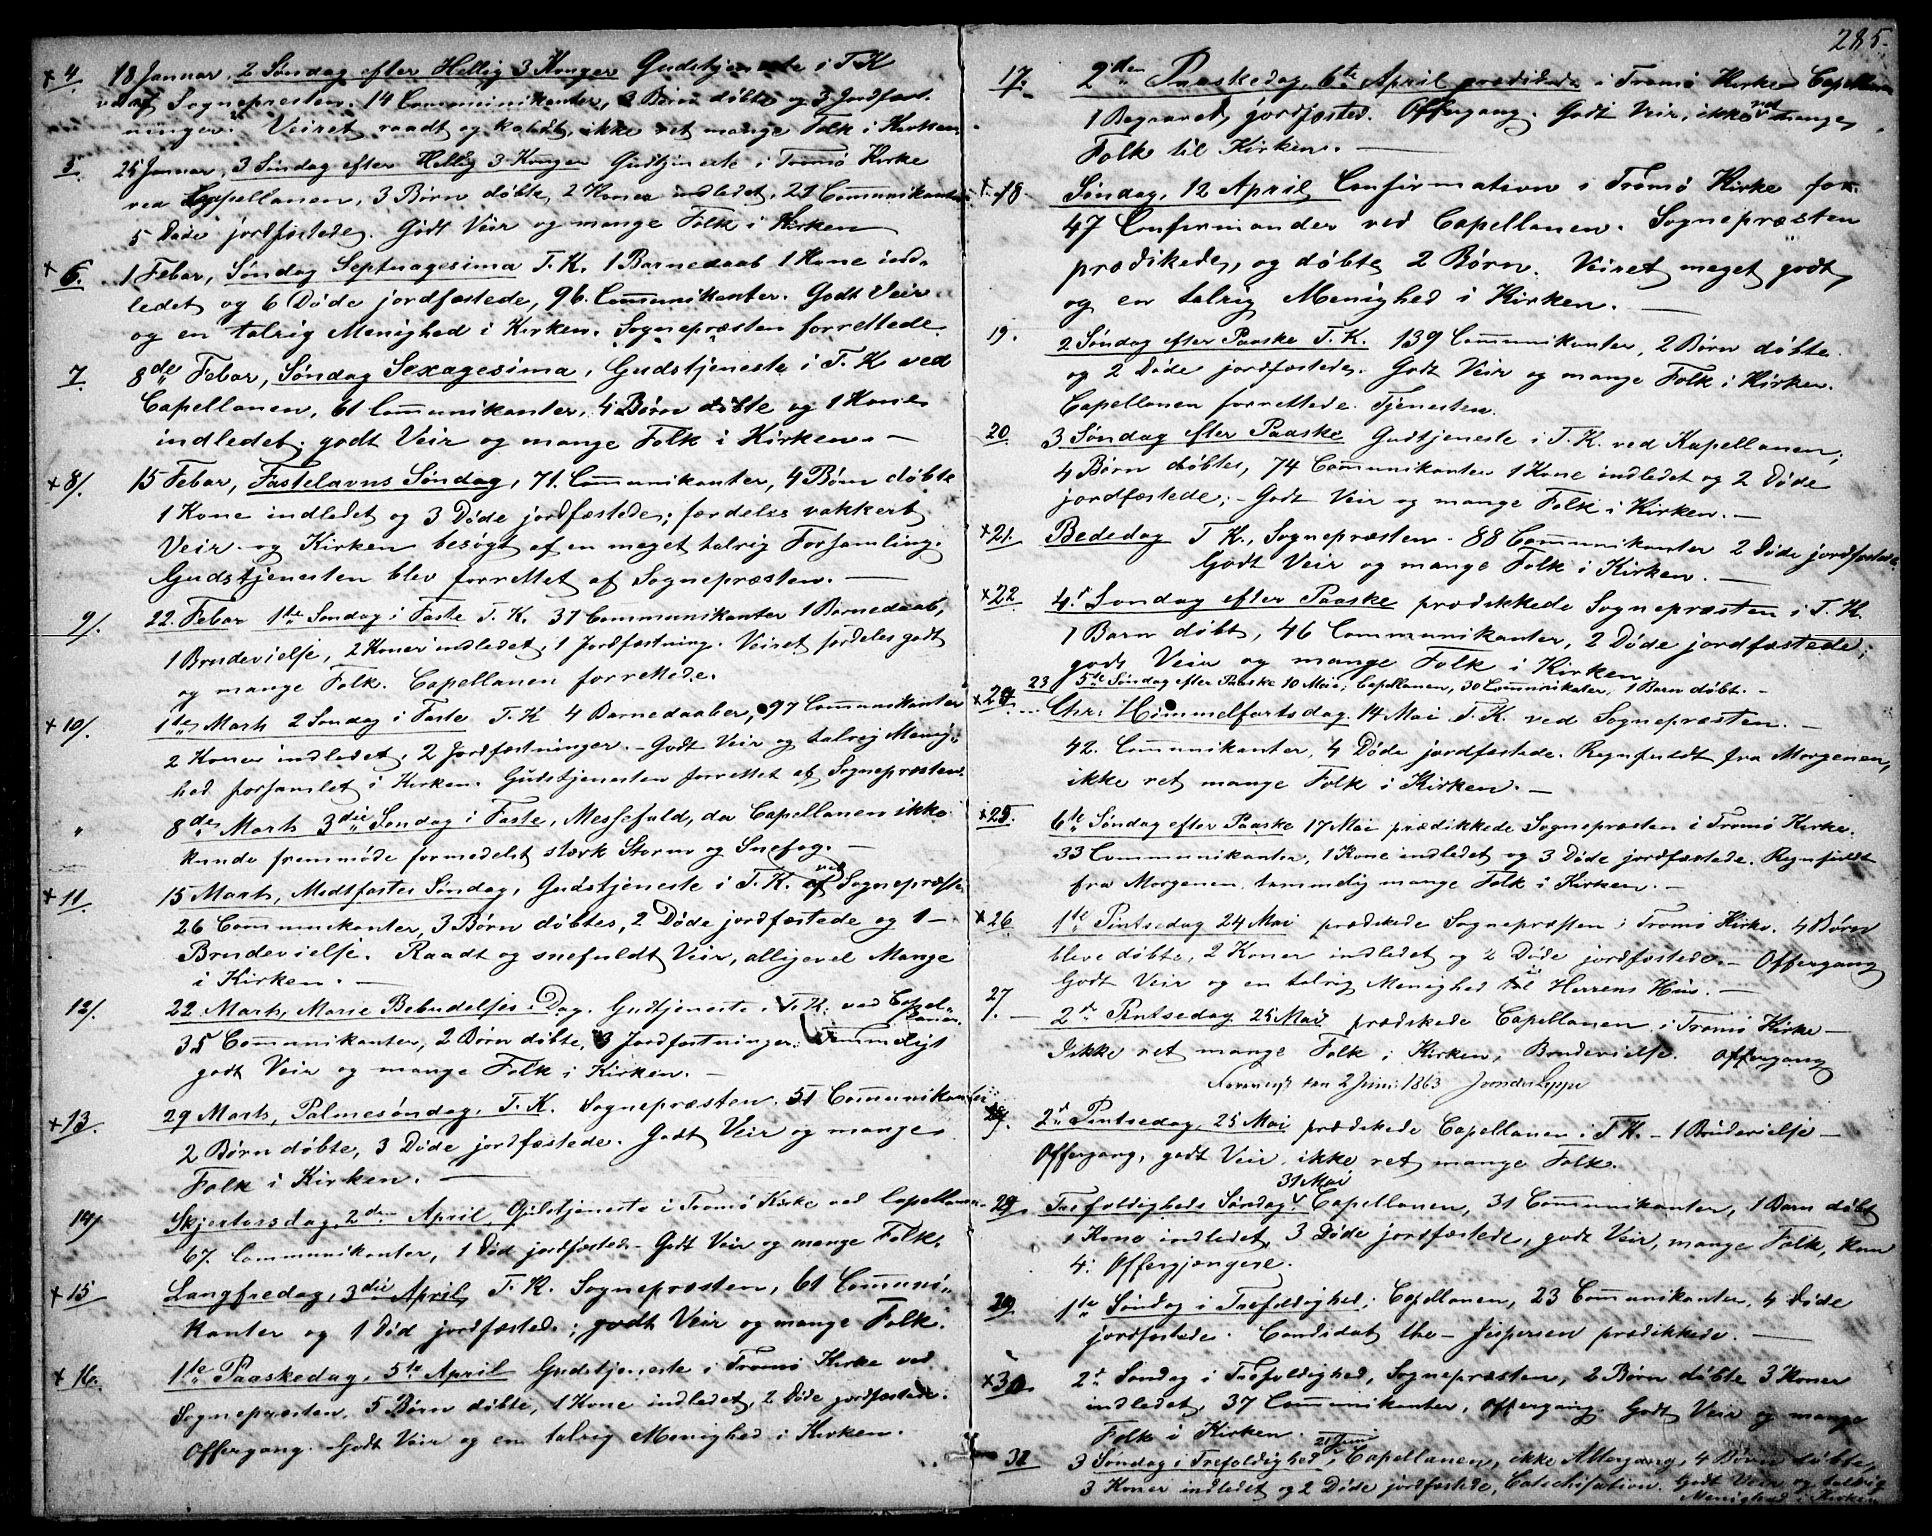 × 4. 18 Januar, 2 Søndag efter Hellig 3 Konger Gudstjeneste i T. K.
ved Sognepræsten. 14 Communikanter, 3 Børn døbte og 3 Jordfæst-
ninger. Veiret raadt og koldt, ikke ret mange Folk i Kirken.
5. 25 Januar, 3 Søndag efter Hellig 3 Konger Gudtjeneste i Tromø Kirke
ved Cappellanen, 3 Børn døbte, 2 Koner indledet, 21 Communikanter
5 Døde jordfæstede. Godt Veir og mange Folk i Kirken
× 6. 1 Febar, Søndag Septuagesima T. K. 1 Barnedaab 1 Kone ind-
ledet og 6 Døde jordfæstede, 96 Communikanter. Godt Veir
og en talrig Menighed i Kirken. Sognepræsten forrettede.
7. 8de Febar, Søndag Sexagesima, Gudstjeneste i T. K. ved
Capellanen, 61 Communikanter, 4 Børn døbte og 1 Kone
indledet; godt Veir og mange Folk i Kirken. —
× 8/. 15 Febar, Fastelavns Søndag, 71. Communikanter, 4 Børn døbte
1 Kone indledet og 3 Døde jordfæstede; færdeles vakkert
Veir og Kirken besøgt af en meget talrig Forsamling.
Gudstjenesten blev forrettet af Sognepræsten. —
9/. 22. Febar 1ste Søndag i Faste T. K. 37 Communikanter 1 Barnedaab,
1 Brudevielse, 2 Koner indledet, 1 Jordfæstning. Veiret fordeles godt
og mange Folk. Capellanen forrettede.
× 10/. 1ste Marts 2 Søndag i Faste T. K 4 Barnedaaber, 97 Communikanter
2 Koner indledet, 2 Jordfæstninger. – Godt Veir og talrig Menig-
hed forsamlet i Kirken. Gudstjenesten forrettet af Sognepræsten.
" 8de Marts 3die Søndag i Faste, Messefald, da Capellanen ikke
kunde fremmøde formedelst stærk Storm og Snefog. —
× 11. 15 Marts, Midtfaste Søndag, Gudstjeneste i T. K. af ved Sognepræste
26 Communikanter, 3 Børn døbtes, 2 Døde jordfæstede og 1 –
Brudevielse. Raadt og snefuldt Veir, alligevel Mange
i Kirken. —
12/. 22 Marts, Marie Bebudelses Dag. Gudtjeneste i T. K. ved Capel-
lanen.
35 Communikanter, 2 Børn døbte, 3 Jordfæstninger. Temmeligt
godt Veir og mange Folk i Kirken. –
× 13. 29 Marts, Palmesøndag, T. K. Sognepræsten. 51 Communikanter
2 Børn døbte, 3 Døde jordfæstede. Godt Veir og mange
Folk i Kirken. —
14/ Skjertorsdag, 2den April, Gudstjeneste i Tromø Kirke ved Capellanen
67. Communikanter, 1 Død jordfæstede – Godt Veir og mange Folk.
× 15 Langfredag, 3die April, T. K. Sognepræsten, 61 Communi-
kanter og 1 Død jordfæsted.; godt Veir og mange Folk.
× 16. 1ste Paaskedag, 5te April Gudstjeneste i Tromø Kirke ved
Sognepræsten. 5 Børn døbte, 1 Kone indledet, 2 Døde jordfæstede.
Offergang. Godt Veir og en talrig Menighed i Kirken.
285.
17. 2den Paaskedag, 6te April prædikede i Tromø Kirke Capellan
1 Begravet, jordfæsted. Offergang. Godt Veir, ikke ret mange
Folk til Kirken. —
× 18. Søndag, 12 April Confirmation i Tromø Kirke for
47 Confirmander ved Capellanen. Sognepræsten
prædikede, og døbte 2 Børn. Veiret meget godt,
og en talrig Menighed i Kirken. —
19. 2 Søndag efter Paaske T. K. 139 Communikanter, 2 Børn døbte
og 2 Døde jordfæstede. Godt Veir og mange Folk i Kirken.
Capellanen forrettede Tjenesten.
20. 3 Søndag efter Paaske Gudtjeneste i T. K. ved Kapellanen,
4 Børn døbtes, 74 Communikanter 1 Kone indledet og 2 Døde
jordfæstede; – Godt Veir og mange Folk i Kirken. —
× 21. Bededag T. K., Sognepræsten. 88 Communikanter 2 Døde jordfæstede
Godt Veir og mange Folk i Kirken. —
× 22 4. Søndag efter Paaske prædikkede Sognepræsten i T. K.
1 Barn døbt, 46 Communikanter, 2 Døde jordfæstede;
godt Veir og mange Folk i Kirken
23 5te Søndag efter Paaske 10 Mai; Capellanen, 30 Communikater, 1 Barn døbt. –
× 24. Chr: Himmelfartsdag 14 Mai T. K. ved Sognepræsten. –
42. Communikanter, 4 Døde jordfæstede. Regnfuldt fra Morgenen,
ikke ret mange Folk i Kirken. —
× 25. 6te Søndag efter Paaske 17 Mai prædikkede Sognepræsten i Tromø Kirke.
33 Communikanter, 1 Kone indledet og 3 Døde jordfæstede. Regnfuldt
fra Morgenen, tammelig mange Folk i Kirken. –
× 26 1ste Pintsedag 24 Mai prædikede Sognepræsten i Tromø Kirke. 4 Børn
bleve døbte, 2 Koner indledet og 2 Døde jordfæstede. – Offergang
Godt Veir og en talrig Menighed i Herrens Huus. —
27/. 2den Pintsedag 25 Mai prædikede Capellanen i Tromø Kirke –
Ikke ret mange Folk i Kirken, Brudevielse. Offergang
den 2 Juni 1863
2d Pintsedag, 25 Mai prædikede Capellanen i T. K. – 1 Brudevielse –
Offergang, godt Veir, ikke ret mange Folk.
28. Trefoldigheds Søndag 31 Mai Capellanen, 31 Communikanter, 1 Barn døbt
1 Kone indledet, 3 Døde jordfæstede, godt Veir, mange Folk, kun
4. Offergjængere.
29. 1ste Søndag i Trefoldighed; Capellanen, 23 Communikanter, 4 Døde
jordfæstede. Candidat the – Jespersen prædikkede. —
× 30 2d Søndag i Trefoldighed, Sognepræsten, 2 Børn døbte 3 Koner
indledet, 37 Communikanter, Offergang. Godt Veir og mange
Folk i Kirken.
31 3 Søndag i Trefoldighed 21 Juni, Capellanen, ikke Altergang, 4 Børn døbte,
3 Koner indledet og 2 Døde jordfæstede, Catechisation. Godt Veir og talrig
Menighed i Kirken